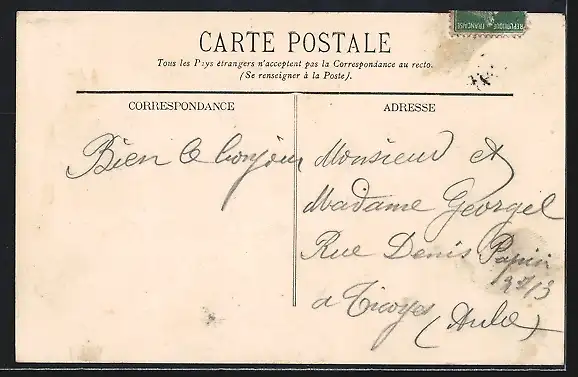 RÉPUBLIQUE FRANÇAISE
CARTE POSTALE
Tous les Pays étrangers n'acceptent pas la Correspondance au recto.
(Se renseigner à la Poste).
CORRESPONDANCE
Bien le bonjour
ADRESSE
Monsieur et
Madame Georgel
Rue Denis Papin
a Troyes
(Aube)